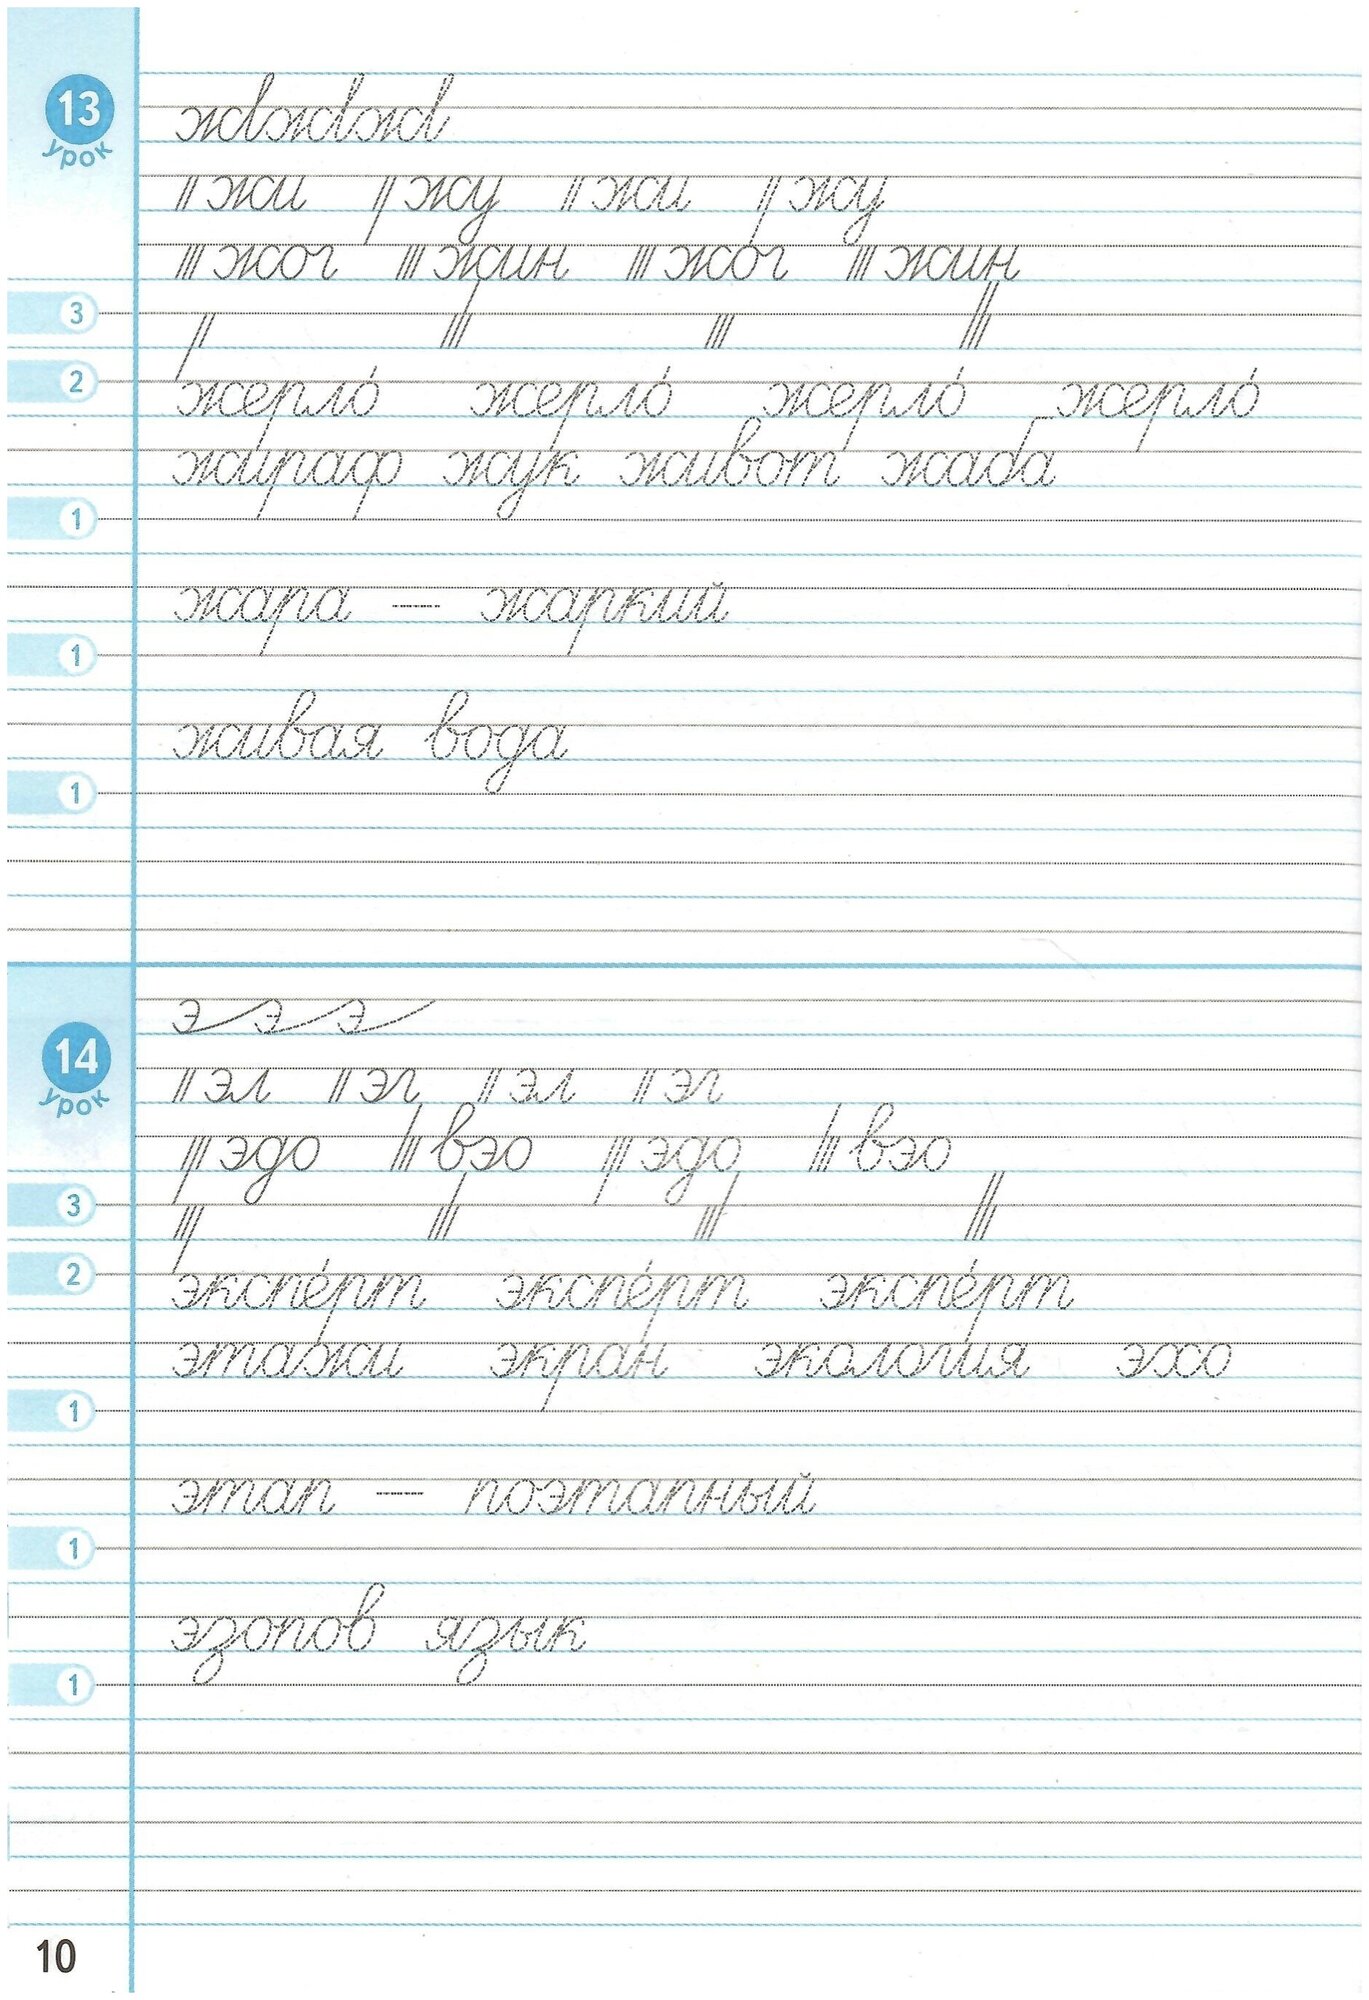 13
урок
жжж
жи жу жи жу
жог жин жог жин
3
2
жерло́ жерло́ жерло́ жерло́
жираф жук живот жаба
1
жара — жаркий
1
живая вода
1
14
урок
э э э
эл эг эл эг
эдо вэо эдо вэо
3
2
экспе́рт экспе́рт экспе́рт
этажи экран экология эхо
1
этап — поэтапный
1
эзопов язык
1
10